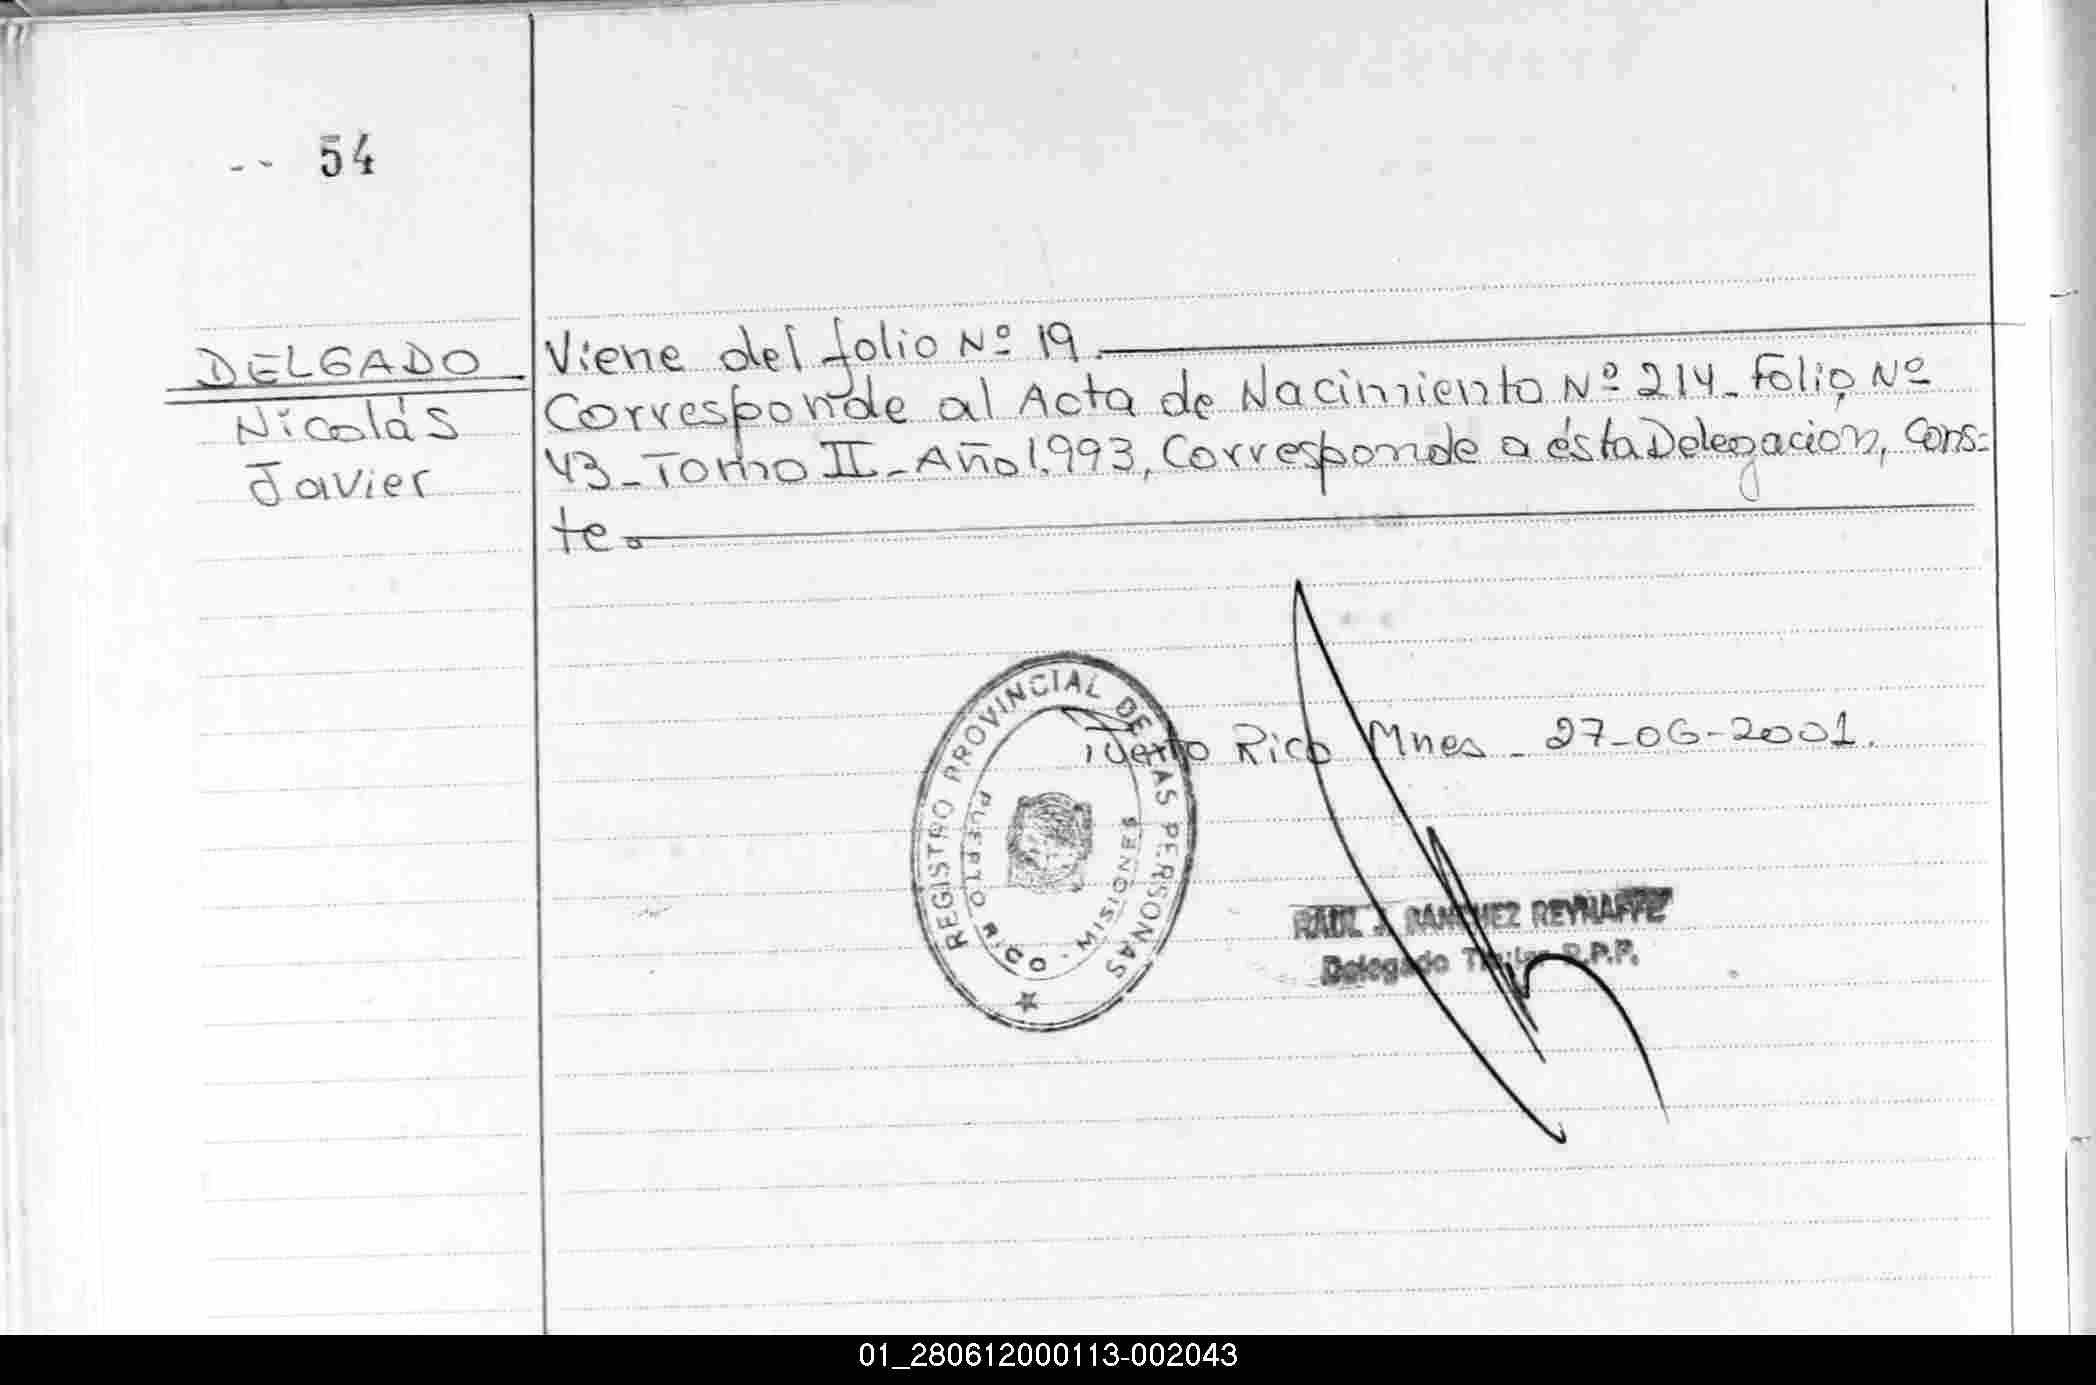 -- 54
DELGADO
Nicolás
Javier
Viene del folio Nº 19.
Corresponde al Acta de Nacimiento Nº 214_ Folio Nº
43_ Tomo II_ Año 1.993, Corresponde a ésta Delegación, Cons=
te.
Puerto Rico Mnes _ 27-06-2001.
REGISTRO PROVINCIAL DE LAS PERSONAS
PUERTO RICO - MISIONES
RAUL J. SANCHEZ REYNAFFE
Delegado Titular R.P.P.
01_280612000113-002043